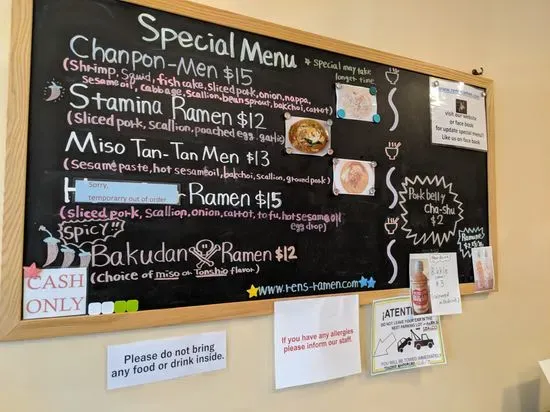 Special Menu
* special may take
longer time.
Chanpon-Men $15
(Shrimp, Squid, fish cake, sliced pork, onion, nappa,
sesame oil, cabbage, scallion, bean sprout, bakchoi, carrot)
Stamina Ramen $12
(Sliced pork, scallion, poached egg, garlic)
Miso Tan-Tan Men $13
(sesame paste, hot sesame oil, bakchoi, scallion, ground pork)
Sorry,
temporarry out of order
H Ramen $15
(sliced pork, scallion, onion, carrot, tofu, hot sesame oil
egg drop)
Spicy!!
Bakudan Ramen $12
(choice of miso or Tonshio flavor.)
www.rens-ramen.com
CASH
ONLY
www.rens-ramen.com
visit our website
or face book
for update special menu!!
Like us on face book
Pork belly
Cha-shu
$2
Ramune
$3
Please do not bring
any food or drink inside.
If you have any allergies
please inform our staff.
¡ATENTI
DO NOT LEAVE YOUR CAR IN THE
YOU WILL BE TOWED IMMEDIATELY